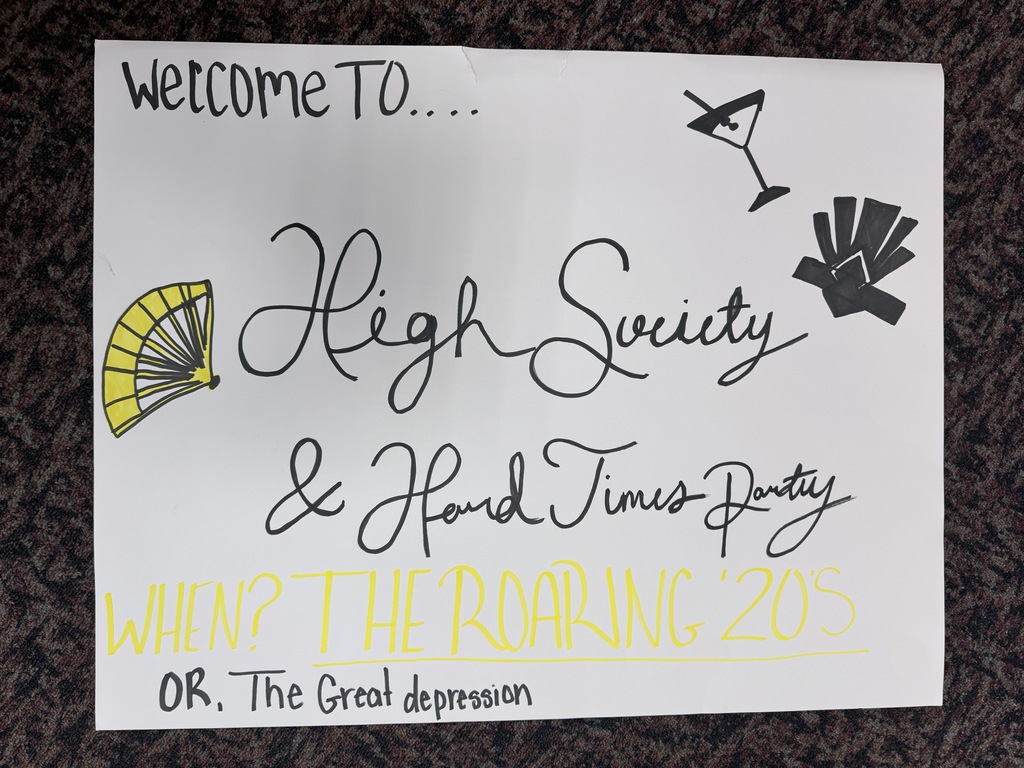 Welcome TO....
High Society
& Hard Times Party
WHEN? THE ROARING '20'S
OR, The Great depression